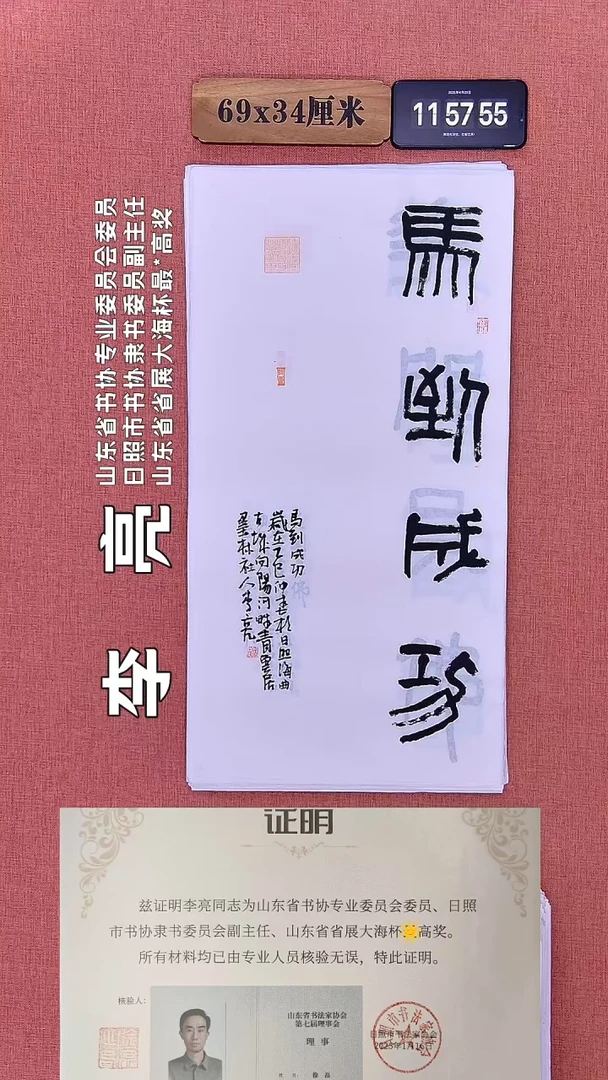 69x34厘米
2025年4月20日
11 57 55
山东省书协专业委员会委员
日照市书协隶书委员副主任
山东省省展大海杯最*高奖
李亮
馬到成功
馬到成功
歲在乙巳仲春於日照海曲
古城向陽河畔青墨居
墨村社人李亮
证明
兹证明李亮同志为山东省书协专业委员会委员、日照
市书协隶书委员会副主任、山东省省展大海杯高奖。
所有材料均已由专业人员核验无误，特此证明。
核验人：
山东省书法家协会
第七届理事会
理 事
日照市书法家协会
2025年1月16日